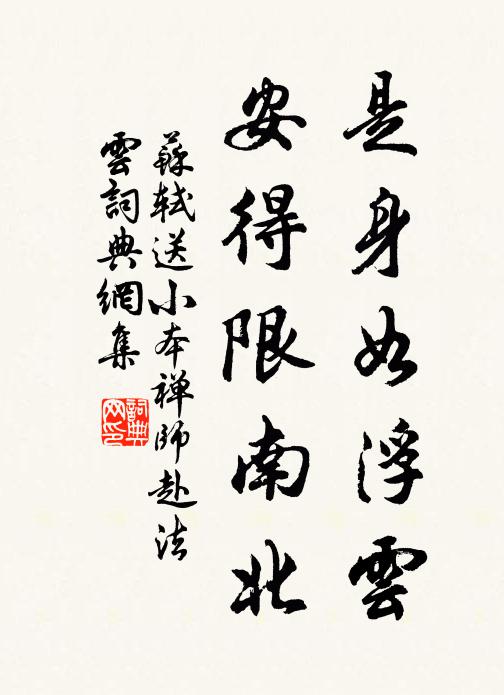 是身如浮雲
安得限南北
蘇軾送小本禅師赴法
雲詞典網集
詞典
网印